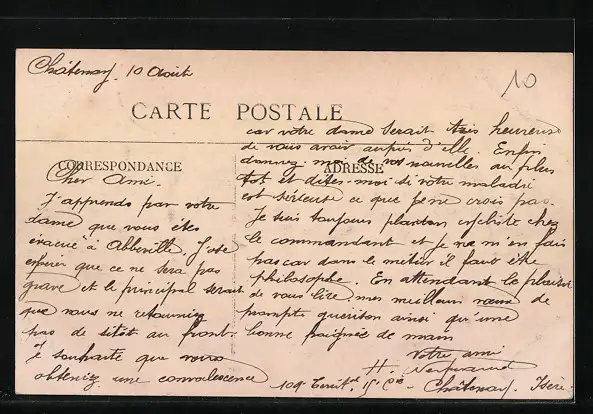 Châtenay, 10 Août
10
CARTE POSTALE
CORRESPONDANCE
ADRESSE
Cher Ami.
J'apprends par votre
dame que vous êtes
évacué à Abbeville J'ose
espérer que ce ne sera pas
grave et le principal serait
que vous ne retourniez
pas de sitôt au front.
Je souhaite que vous
obteniez une convalescence
car votre dame serait très heureuse
de vous avoir auprès d'elle. Enfin
donnez-moi de vos nouvelles au plus
tôt et dites-moi si votre maladie
est sérieuse ce que je ne crois pas.
Je suis toujours planton cycliste chez
le commandant et je ne m'en fais
pas car dans le métier il faut être
philosophe. En attendant le plaisir
de vous lire, mes meilleurs voeux de
prompte guérison ainsi qu'une
bonne poignée de main
Votre ami
H.
109 Territ. Cie - Châtenay. Isère.